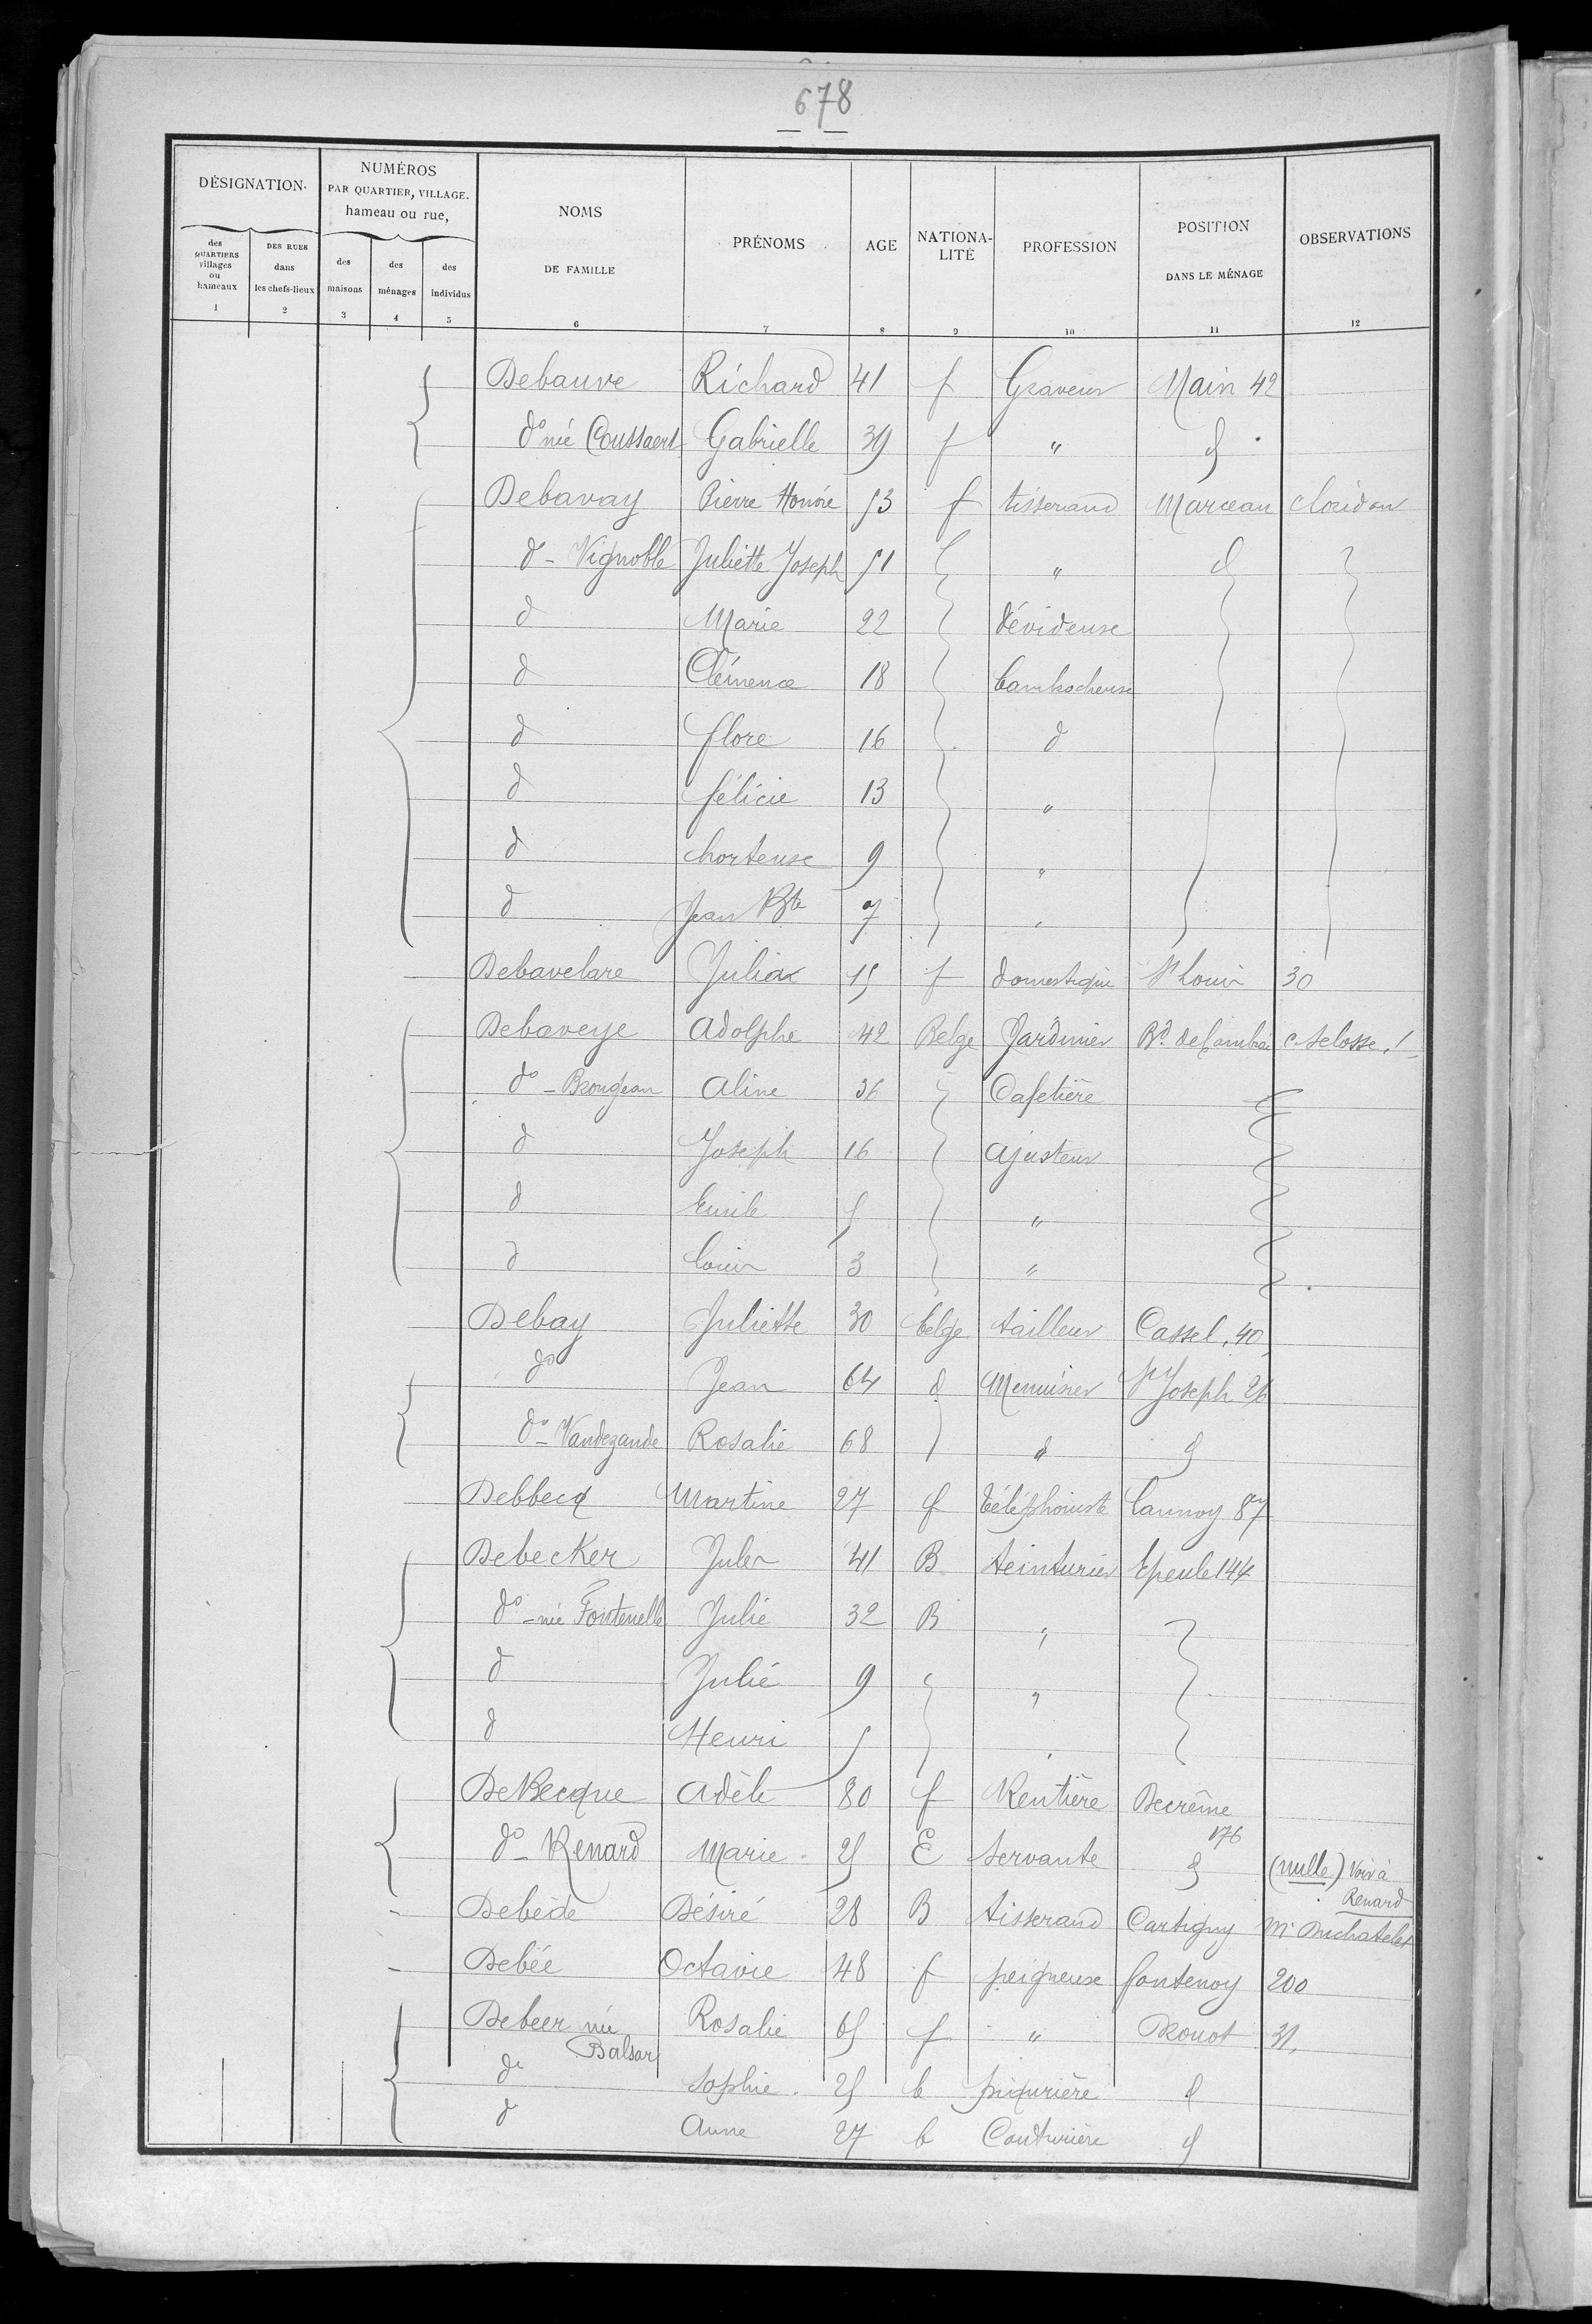 678
DÉSIGNATION.
NUMÉROS
PAR QUARTIER, VILLAGE.
hameau ou rue,
des
QUARTIERS
villages
ou
hameaux
1
DES RUES
dans
les chefs-lieux
2
des
maisons
3
des
ménages
4
des
individus
5
NOMS
DE FAMILLE
6
PRÉNOMS
7
AGE
8
NATIONA-
LITÉ
9
PROFESSION
10
POSITION
DANS LE MÉNAGE
11
OBSERVATIONS
12
Debauve Richard 41 f Graveur Main 42
do née Coussaert Gabrielle 39 f " d
Debavay Pierre Honoré 53 f tisserand Marceau c
d - Vignoble Juliette Joseph 51 " d
d Marie 22 dévideuse
d Clémence 18
d flore 16 d
d félicie 13 "
d hortense 9 "
d Jean Bte 7 "
Debavelare Julia 15 f domestique St Louis 30
Debaveye Adolphe 42 Belge Jardinier Bd de Cambrai c Selosse, 1
do - Brougean Aline 36 Cafetière
d Joseph 16 ajusteur
d Emile 5 "
d Louis 3 "
Debay Juliette 30 belge tailleur Cassel, 40
do Jean 64 d Menuisier St Joseph 26
do - Vandezande Rosalie 68 d d
Debbecq Martine 27 f téléphoniste Lannoy 87
Debecker Jules 41 B teinturier Epeule 144
do - née Fontenelle Julie 32 B "
d Julie 9 "
d Henri 5
DeBecque Adèle 80 f Rentière Decrême
176
do - Renard Marie 25 E servante d (nulle) Voir à
Renard
Debède Désiré 28 B tisserand Cartigny Mn Duchatelet
Debée Octavie 48 f peigneuse fontenoy 200
Debeer née Rosalie 65 f " Drouot 31,
Balsar
do Sophie 25 b piqurière d
d Anne 27 b Couturière d